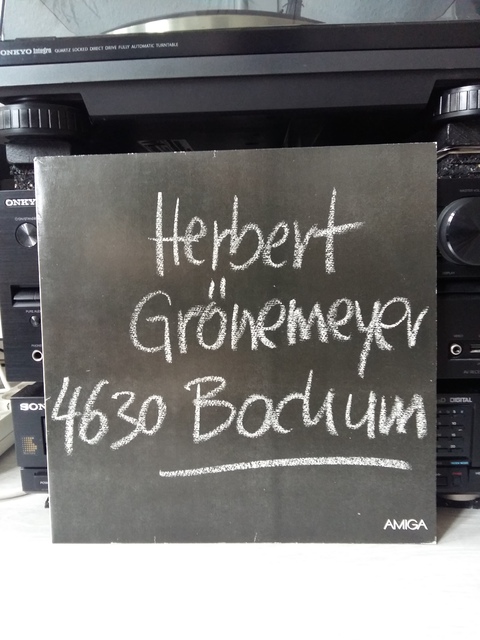 ONKYO Integra QUARTZ LOCKED DIRECT DRIVE FULLY AUTOMATIC TURNTABLE
ONKYO
Herbert
Grönemeyer
4630 Bochum
SON
DIGITAL
AMIGA